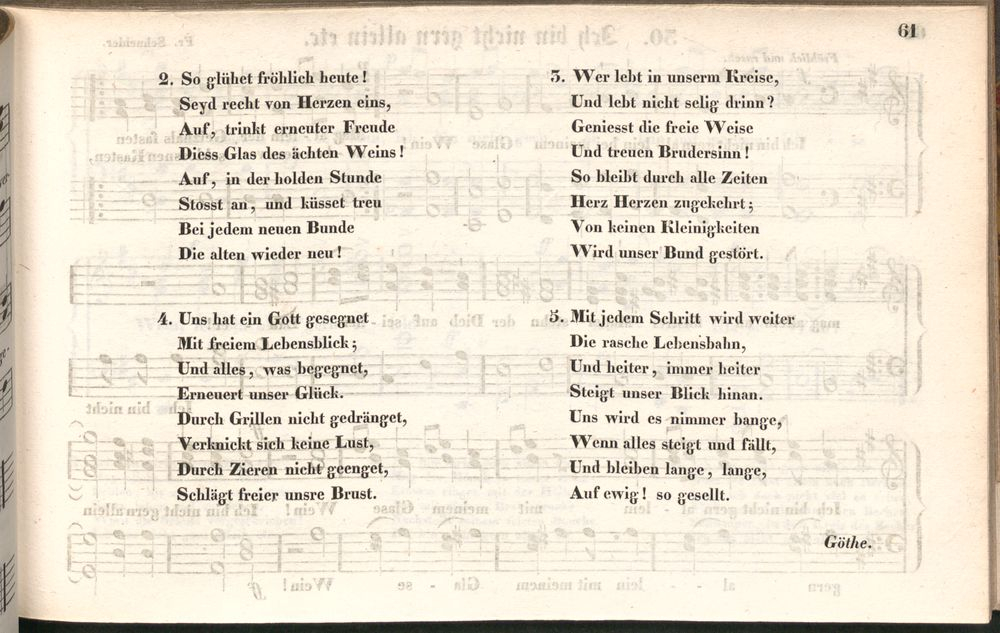 61
2. So glühet fröhlich heute!
Seyd recht von Herzen eins,
Auf, trinkt erneuter Freude
Diess Glas des ächten Weins!
Auf, in der holden Stunde
Stosst an, und küsset treu
Bei jedem neuen Bunde
Die alten wieder neu!
3. Wer lebt in unserm Kreise,
Und lebt nicht selig drinn?
Geniesst die freie Weise
Und treuen Brudersinn!
So bleibt durch alle Zeiten
Herz Herzen zugekehrt;
Von keinen Kleinigkeiten
Wird unser Bund gestört.
4. Uns hat ein Gott gesegnet
Mit freiem Lebensblick;
Und alles, was begegnet,
Erneuert unser Glück.
Durch Grillen nicht gedränget,
Verknickt sich keine Lust,
Durch Zieren nicht geenget,
Schlägt freier unsre Brust.
5. Mit jedem Schritt wird weiter
Die rasche Lebensbahn,
Und heiter, immer heiter
Steigt unser Blick hinan.
Uns wird es nimmer bange,
Wenn alles steigt und fällt,
Und bleiben lange, lange,
Auf ewig! so gesellt.
Göthe.